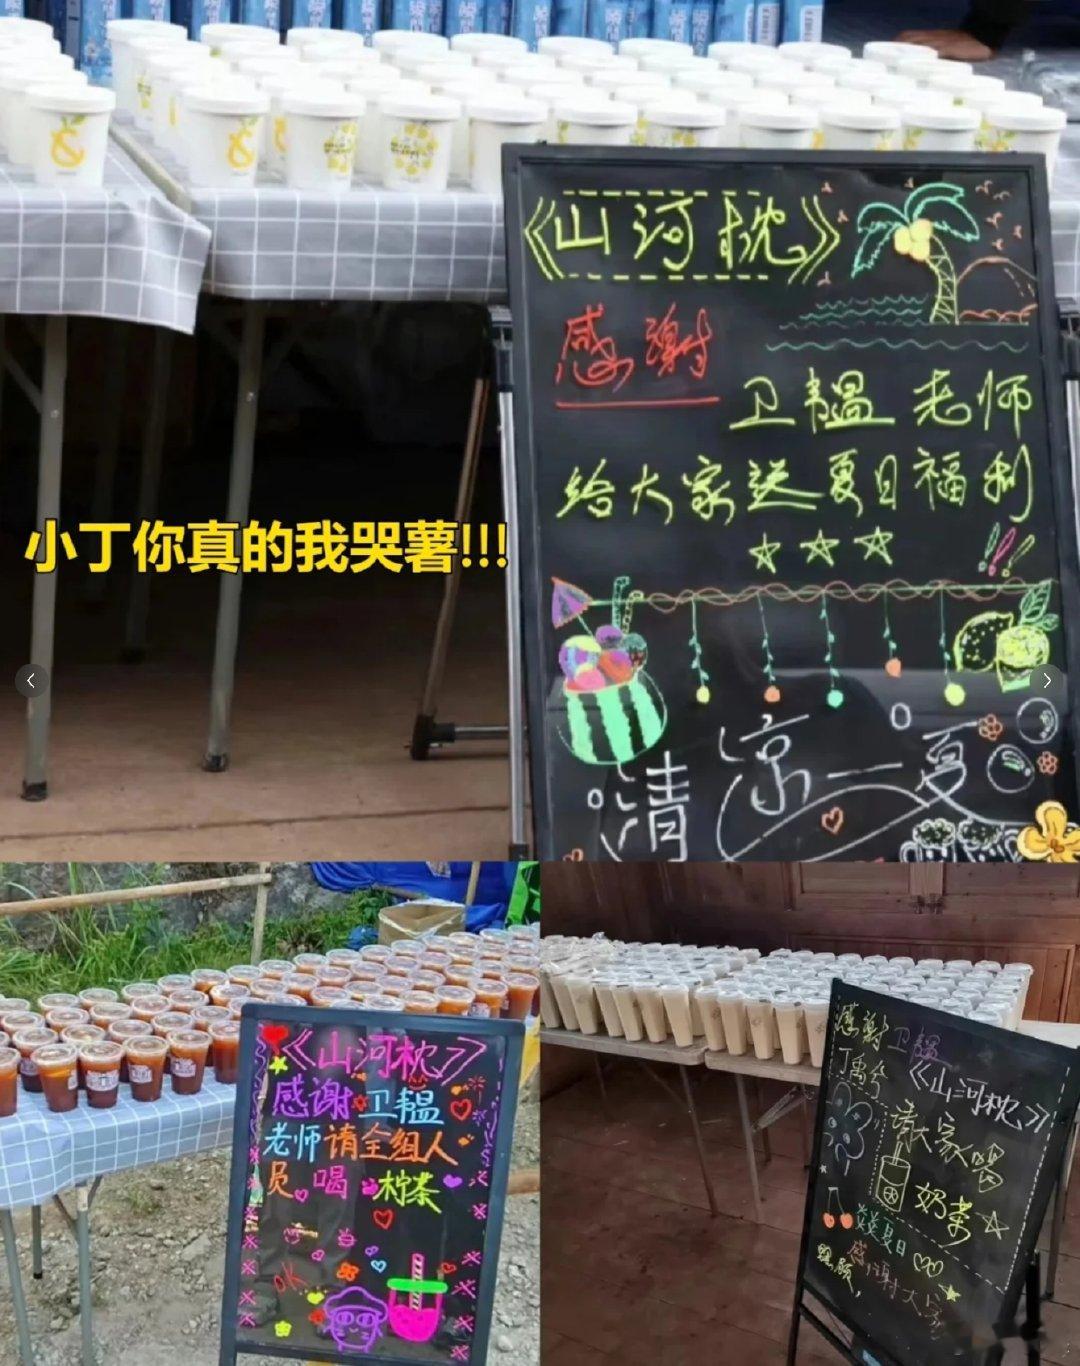 《山河枕》
感谢
卫韫老师
给大家送夏日福利
小丁你真的我哭薯!!!
清凉一夏
《山河枕》
感谢卫韫
老师请全组人
员喝柠茶
OK
感谢卫韫
丁禹兮
《山河枕》
请大家喝
奶茶
炎炎夏日
感谢大家